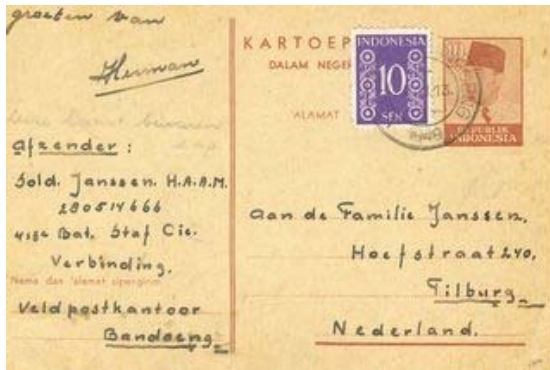 groeten van
Herman
Afzender :
Sold. Janssen. H.A.A.M.
280514666
418e Bat. Staf Cie.
Verbinding.
Nama dan 'alamat sipengirim
Veldpostkantoor
Bandoeng
KARTOEP
DALAM NEGER
ALAMAT
INDONESIA
10
SEN
REPUBLIK
INDONESIA
Aan de Familie Janssen.
Hoefstraat 240.
Tilburg
Nederland.